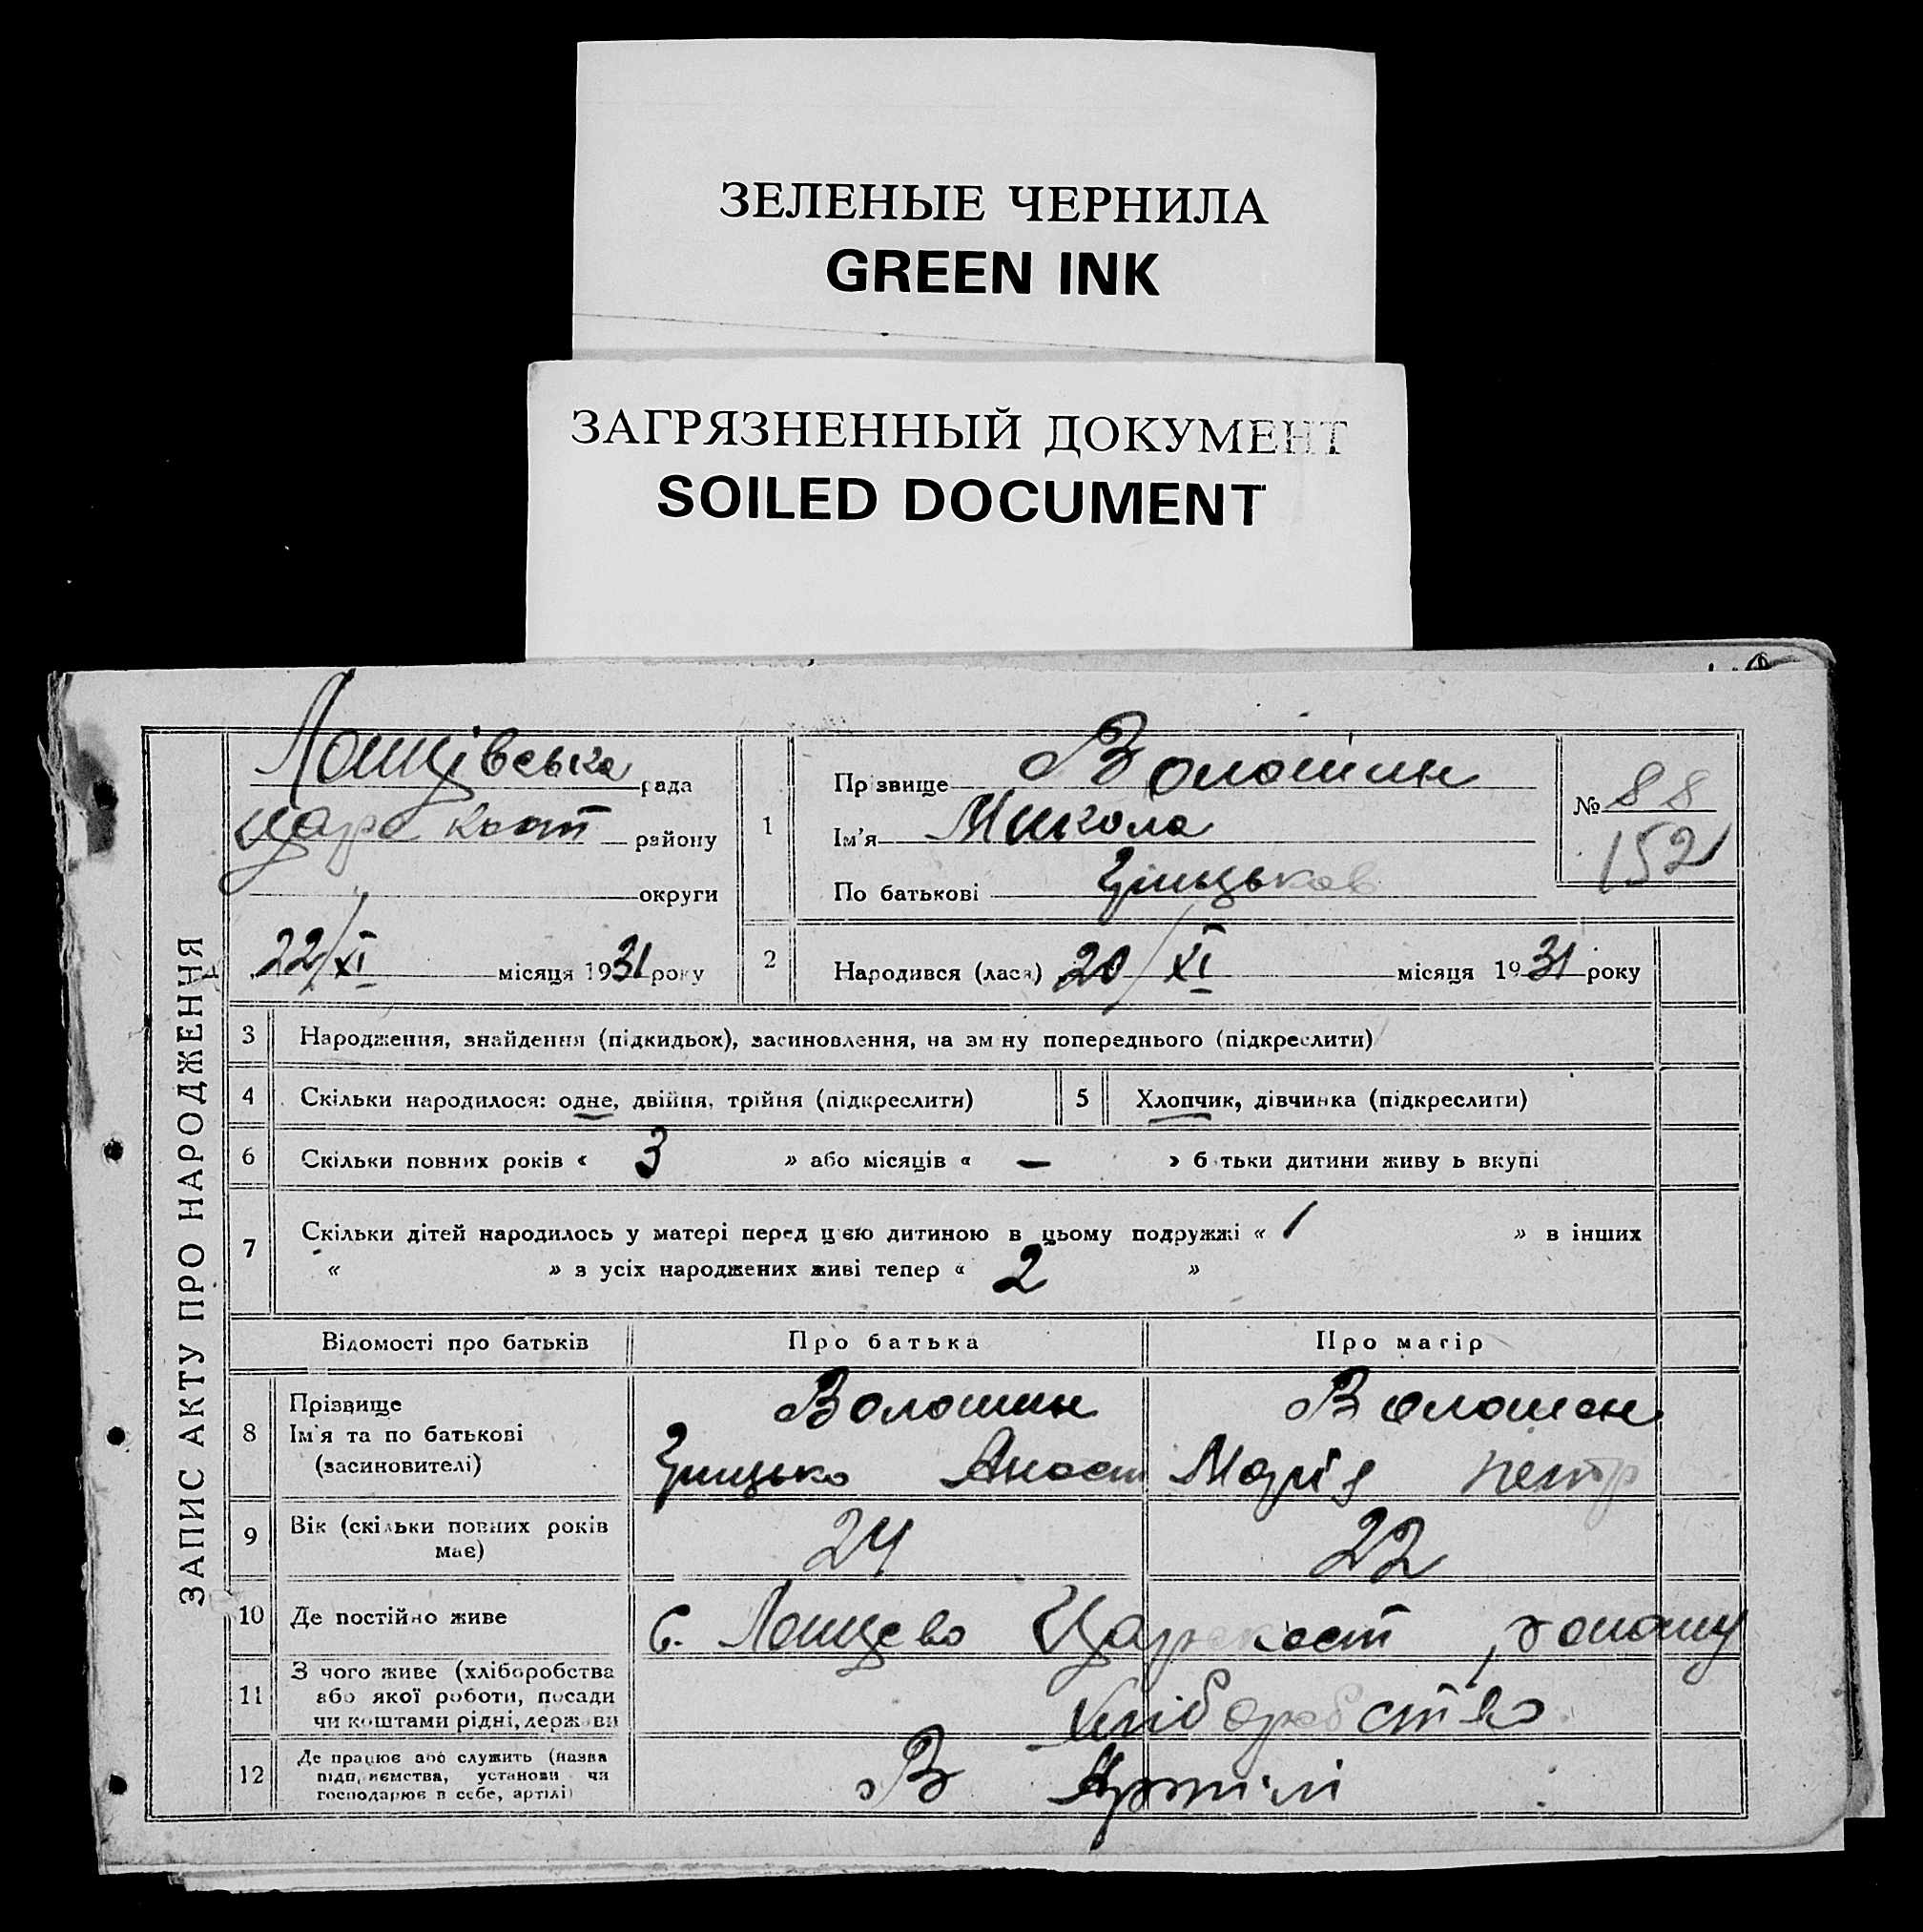 ЗЕЛЕНЫЕ ЧЕРНИЛА
GREEN INK
ЗАГРЯЗНЕННЫЙ ДОКУМЕНТ
SOILED DOCUMENT
ЗАПИС АКТУ ПРО НАРОДЖЕННЯ
Лощівська рада
району
округи
22/XI місяця 1931 року
1
Прізвище Волошин
Ім'я Микола
По батькові Грицьков
№ 88
152
2
Народився (лася) 20/XI місяця 1931 року
3 Народження, знайдення (підкидьок), засиновлення, на зміну попереднього (підкреслити)
4 Скільки народилося: одне, двійня, трійня (підкреслити)
5 Хлопчик, дівчинка (підкреслити)
6 Скільки повних років « 3 » або місяців « — » батьки дитини живуть вкупі
7 Скільки дітей народилось у матері перед цією дитиною в цьому подружжі « 1 » в інших
« » з усіх народжених живі тепер « 2 »
Відомості про батьків Про батька Про матір
8 Прізвище Ім'я та по батькові (засиновителі)
Волошин
Грицько Аност
Волошен
Марія Петр
9 Вік (скільки повних років має) 24 22
10 Де постійно живе с. Лощево
11 З чого живе (хліборобства або якої роботи, посади чи коштами рідні, держави
Хліборобство
12 Де працює або служить (назва підприємства, установи чи господарює в себе, артілі)
В Артілі